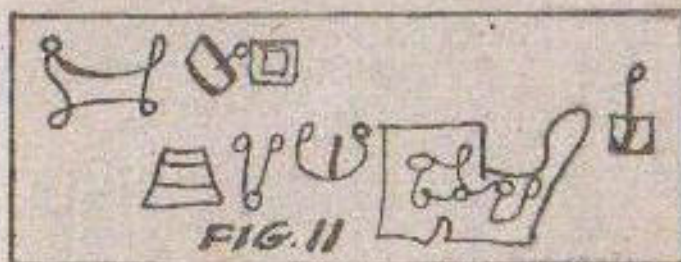 FIG. 11